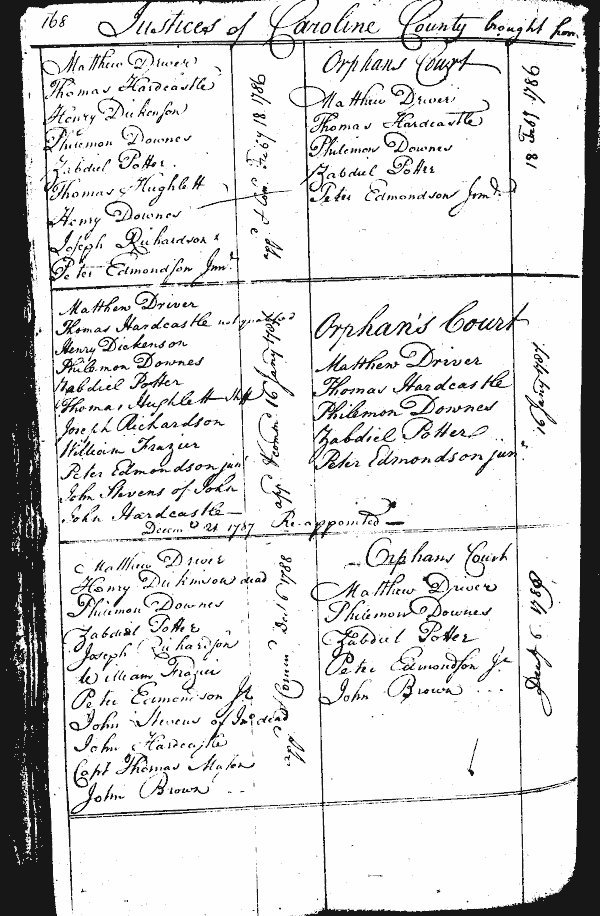 168 Justices of Caroline County brought from
Matthew Driver
Thomas Hardcastle
Henry Dickenson
Philemon Downes
Zabdiel Potter
Thomas Hughlett
Henry Downes
Joseph Richardson
Peter Edmondson Junr
appd & Com. Feby 18 1786
Orphans Court
Matthew Driver
Thomas Hardcastle
Philemon Downes
Zabdiel Potter
Peter Edmondson Junr
18 Feby 1786
Matthew Driver
Thomas Hardcastle not qualified
Henry Dickenson
Philemon Downes
Zabdiel Potter
Thomas Hughlett Shff
Joseph Richardson
William Frazier
Peter Edmondson junr
John Stevens of John
John Hardcastle
Decemr 21 1787 Re-appointed
appd & comd 16 Jany
Orphan's Court
Matthew Driver
Thomas Hardcastle
Philemon Downes
Zabdiel Potter
Peter Edmondson junr
16 Jany
Matthew Driver
Henry Dickinson dead
Philemon Downes
Zabdiel Potter
Joseph Richardson
William Frazier
Peter Edmondson Jr
John Stevens of Jno dead
John Hardcastle
Capt Thomas Mason
John Brown
1788
Orphans Court
Matthew Driver
Philemon Downes
Zabdiel Potter
Peter Edmondson Jr
John Brown
6 1788